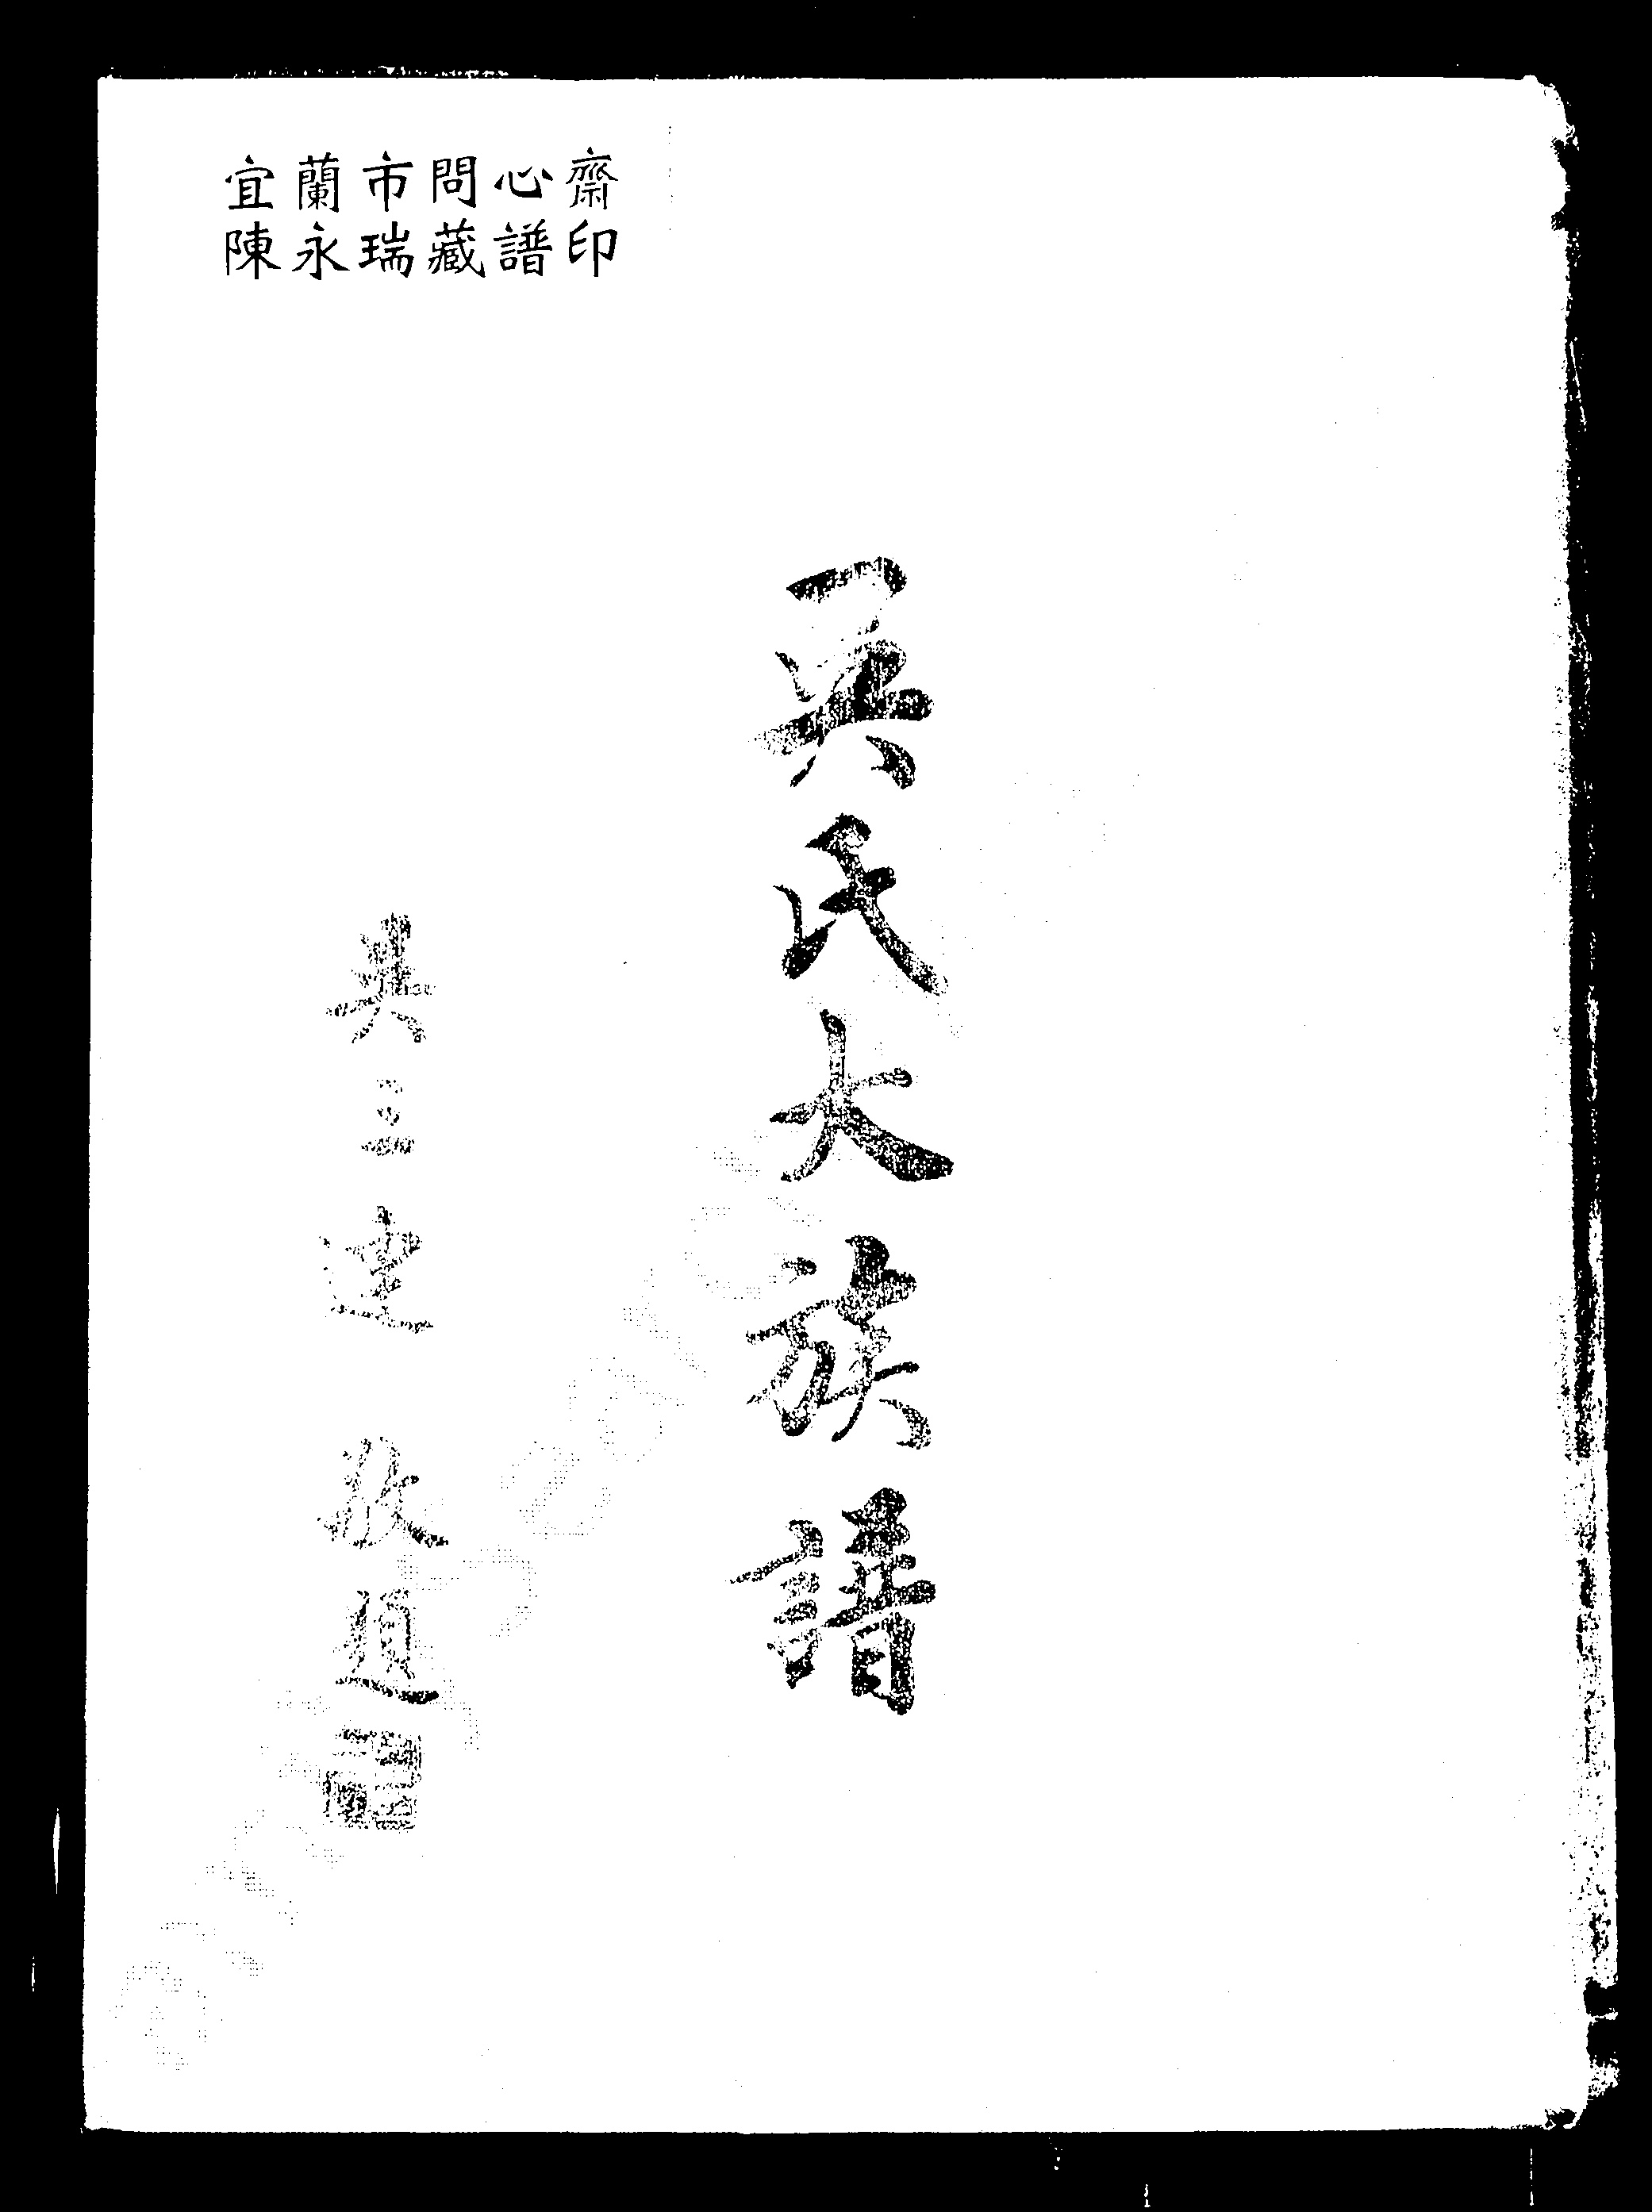 宜蘭市問心齋
陳永瑞藏譜印
吳氏大族譜
吳三連 敬題